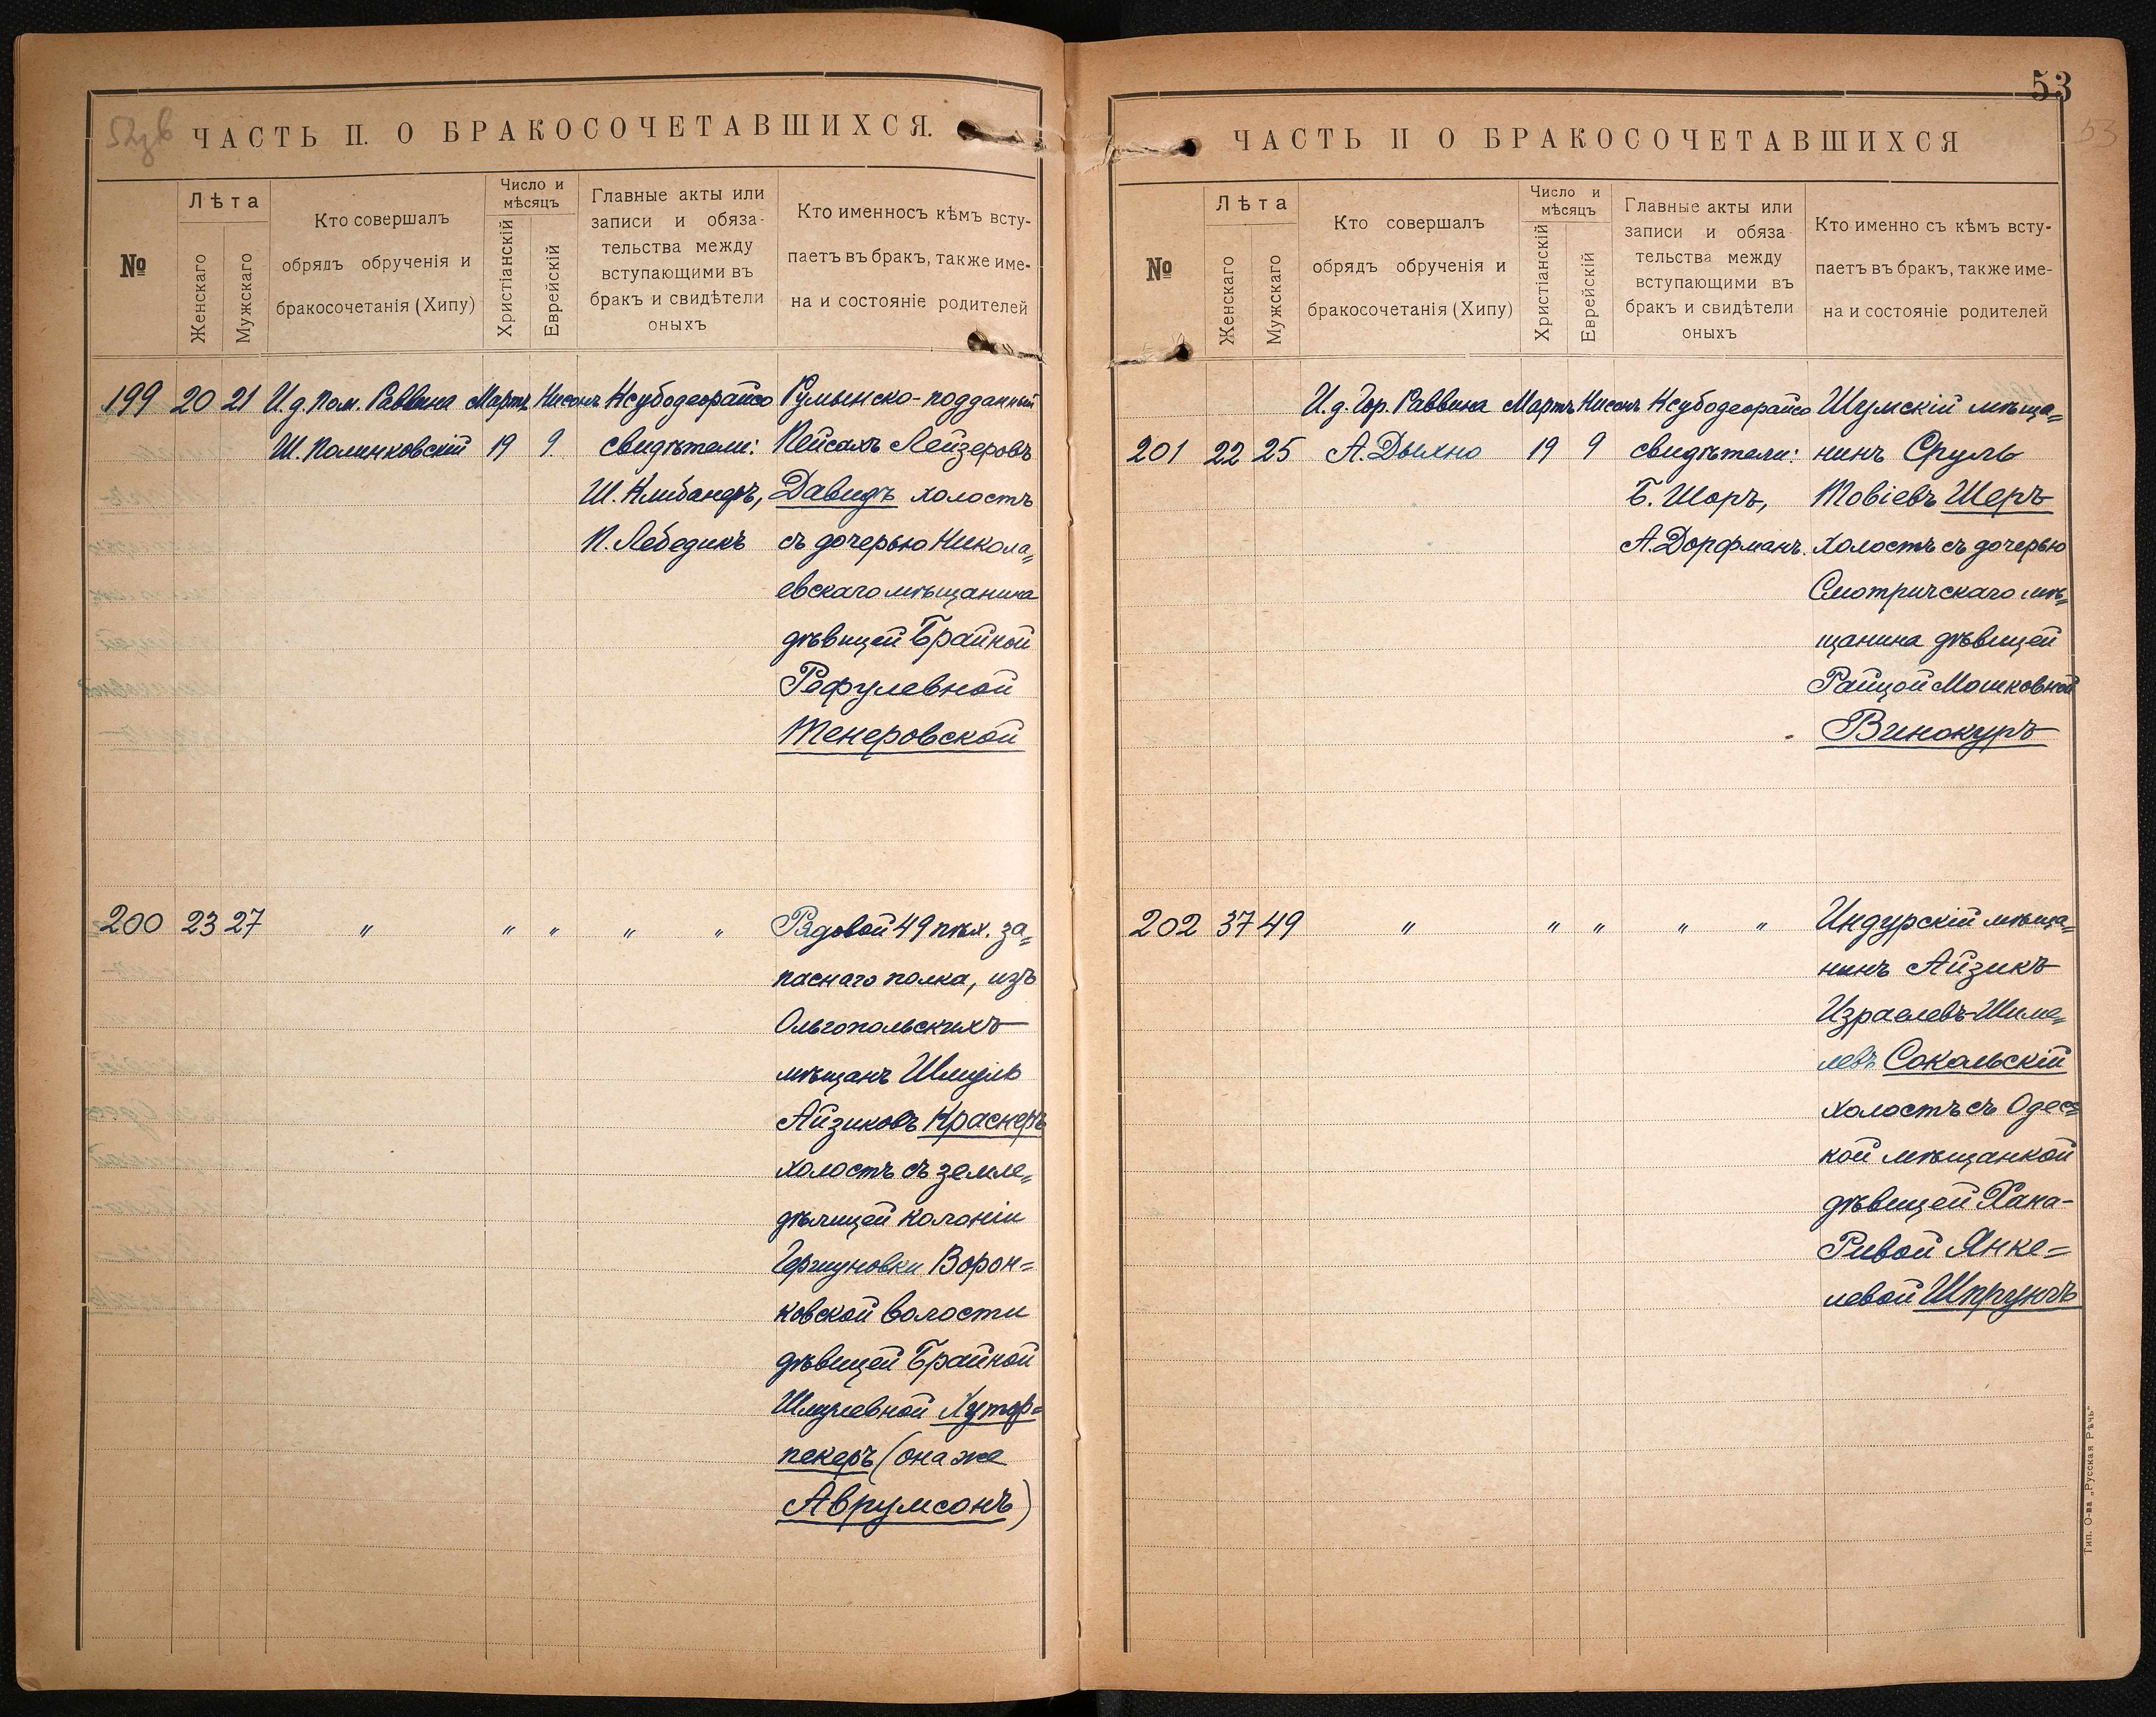 52зв
ЧАСТЬ II. О БРАКОСОЧЕТАВШИХСЯ.
№
Лѣта
Женскаго
Мужскаго
Кто совершалъ
обрядъ обрученія и
бракосочетанія (Хипу)
Число и
мѣсяцъ
Христіанскій
Еврейскій
Главные акты или
записи и обяза-
тельства между
вступающими въ
бракъ и свидѣтели
оныхъ
Кто именносъ кѣмъ всту-
паетъ въ бракъ, также име-
на и состояніе родителей
199 20 21 И.д. Пом. Раввина Мартъ Нисонъ Ксубодеорайсо Румынско-подданный
Ш. Полинковскій 19 9. свидѣтели: Пейсахъ Лейзеровъ
Ш. Клибанеръ, Давидъ холостъ
П. Лебедикъ съ дочерью Никола„
евскаго мѣщанина
дѣвицей Брайной
Рафулевной
Тенеровской
200 23 27 „ „ „ „ „ Рядовой 49 пѣх. за„
паснаго полка, изъ
Ольгопольскихъ
мѣщанъ Шмуль
Айзиковъ Краснеръ
холостъ съ земле„
дѣлицей колоніи
Гершуновки Ворон=
ковской волости
дѣвицей Брайной
Шмулевной Хутор=
пекеръ (она же
Аврумсонъ)
53
53
ЧАСТЬ II О БРАКОСОЧЕТАВШИХСЯ
№
Лѣта
Женскаго
Мужскаго
Кто совершалъ
обрядъ обрученія и
бракосочетанія (Хипу)
Число и
мѣсяцъ
Христіанскій
Еврейскій
Главные акты или
записи и обяза-
тельства между
вступающими въ
бракъ и свидѣтели
оныхъ
Кто именно съ кѣмъ всту-
паетъ въ бракъ, также име-
на и состояніе родителей
И.д. Гор. Раввина Мартъ Нисонъ Ксубодеорайсо Шумскій мѣща„
201 22 25 А. Дыхно 19 9 свидѣтели: нинъ Сруль
Б. Шоръ, Товіевъ Шеръ
А. Дорфманъ. холостъ съ дочерью
Смотричскаго мѣ„
щанина дѣвицей
Райцой Мошковной
Винокуръ
202 37 49 „ „ „ „ „ Индурскій мѣща„
нинъ Айзикъ
Израелевъ-Шме„
левъ Сокольскій
холостъ съ Одес=
кой мѣщанкой
дѣвицей Хана-
Ривой Янке=
левой Шпрунгъ
Тип. О-ва „Русская Рѣчь“